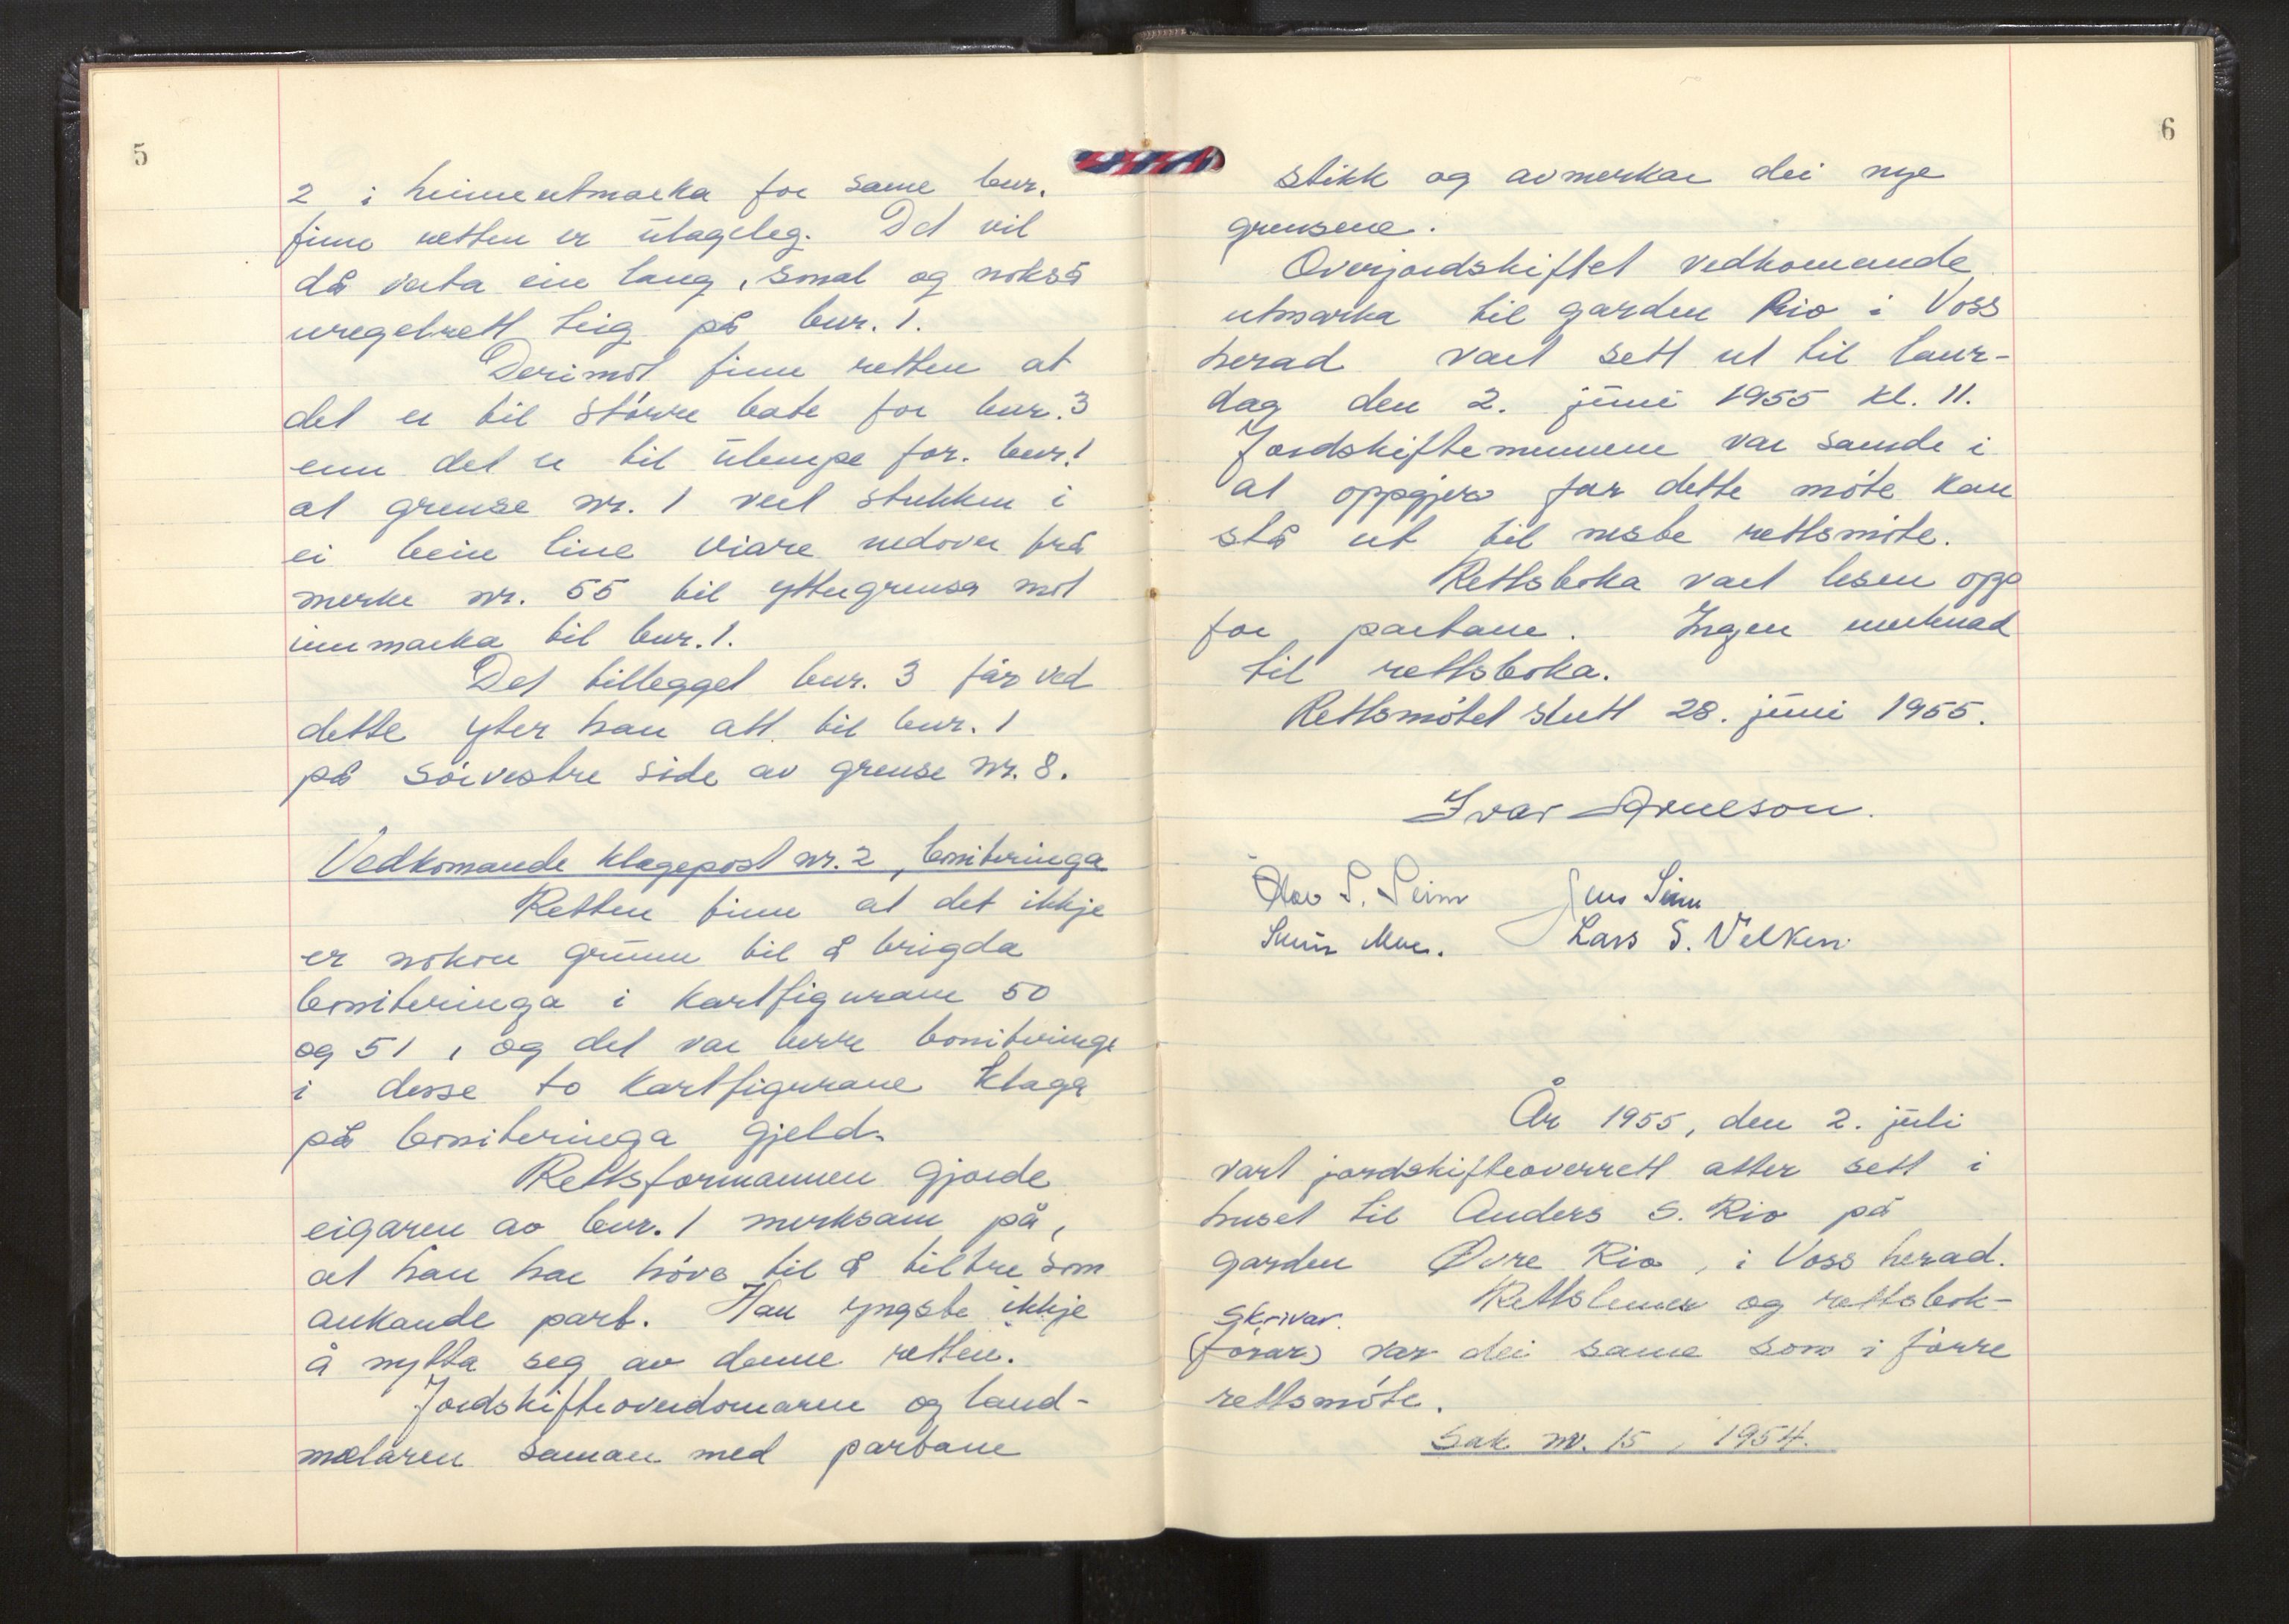 5
2 i heimeutmarka for same bnr.
finn retten er ulageleg. Det vil
då verta ein lang, smal og nokså
uregelrett teig på bnr. 1.
Derimot finn retten at
det er til större bate for bnr. 3
enn det er til ulempe for. bnr. 1
at grense nr. 1 vert stukken i
ei bein line viare nedover frå
merke nr. 55 til yttergrensa mot
innmarka til bnr. 1.
Det tillegget bnr. 3 får ved
dette yter han att til bnr. 1
på sörvestre side av grense nr. 8.
Vedkomande klagepost nr. 2, boniteringa
Retten finn at det ikkje
er nokon grunn til å brigda
boniteringa i kartfigurane 50
og 51, og det var berre boniteringa
i desse to kartfigurane klaga
på boniteringa gjeld.
Rettsformannen gjorde
eigaren av bnr. 1 merksam på,
at han har höve til å tiltre som
ankande part. Han yngste ikkje
å nytta seg av denne retten.
Jordskifteoverdomaren og land-
mælaren saman med partane
6
stikk og avmerkar dei nye
grensene.
Overjordskiftet vedkomande
utmarka til garden Rio i Voss
herad vart sett ut til laur-
dag den 2. juni 1955 kl. 11.
Jordskiftemennene var samde i
at oppgjerd for dette möte kan
stå ut til neste rettsmöte.
Rettsboka vart lesen opp
for partane. Ingen merknad
til rettsboka.
Rettsmötet slutt 28. juni 1955.
Ivar Arneson.
Olav S. Seim Jens Seim
Moe. Lars S. Velken
År 1955, den 2. juli
vart jordskifteoverrett atter sett i
huset til Anders S. Rio på
garden Øvre Rio, i Voss herad.
Rettslemer og rettsbok-
skrivar.
(förar) var dei same som i förre
rettsmöte.
Sak nr. 15, 1954.